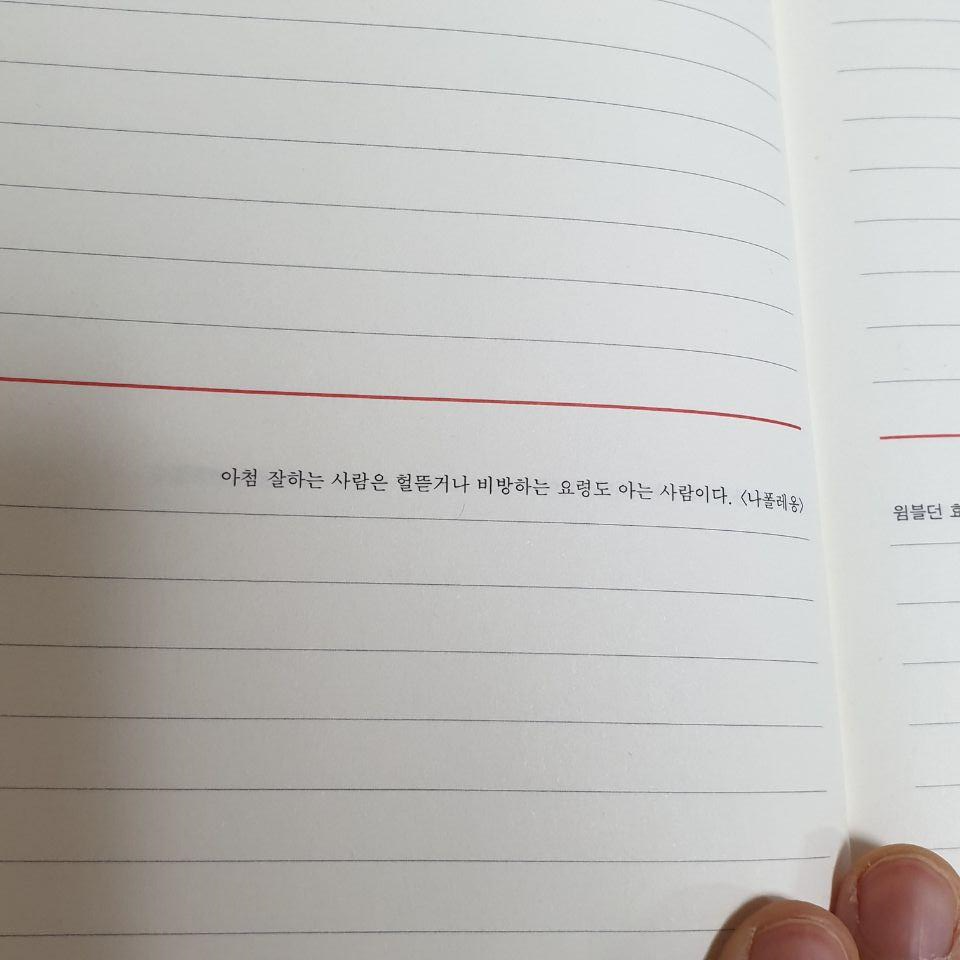 아첨 잘하는 사람은 헐뜯거나 비방하는 요령도 아는 사람이다. 〈나폴레옹〉
윔블던